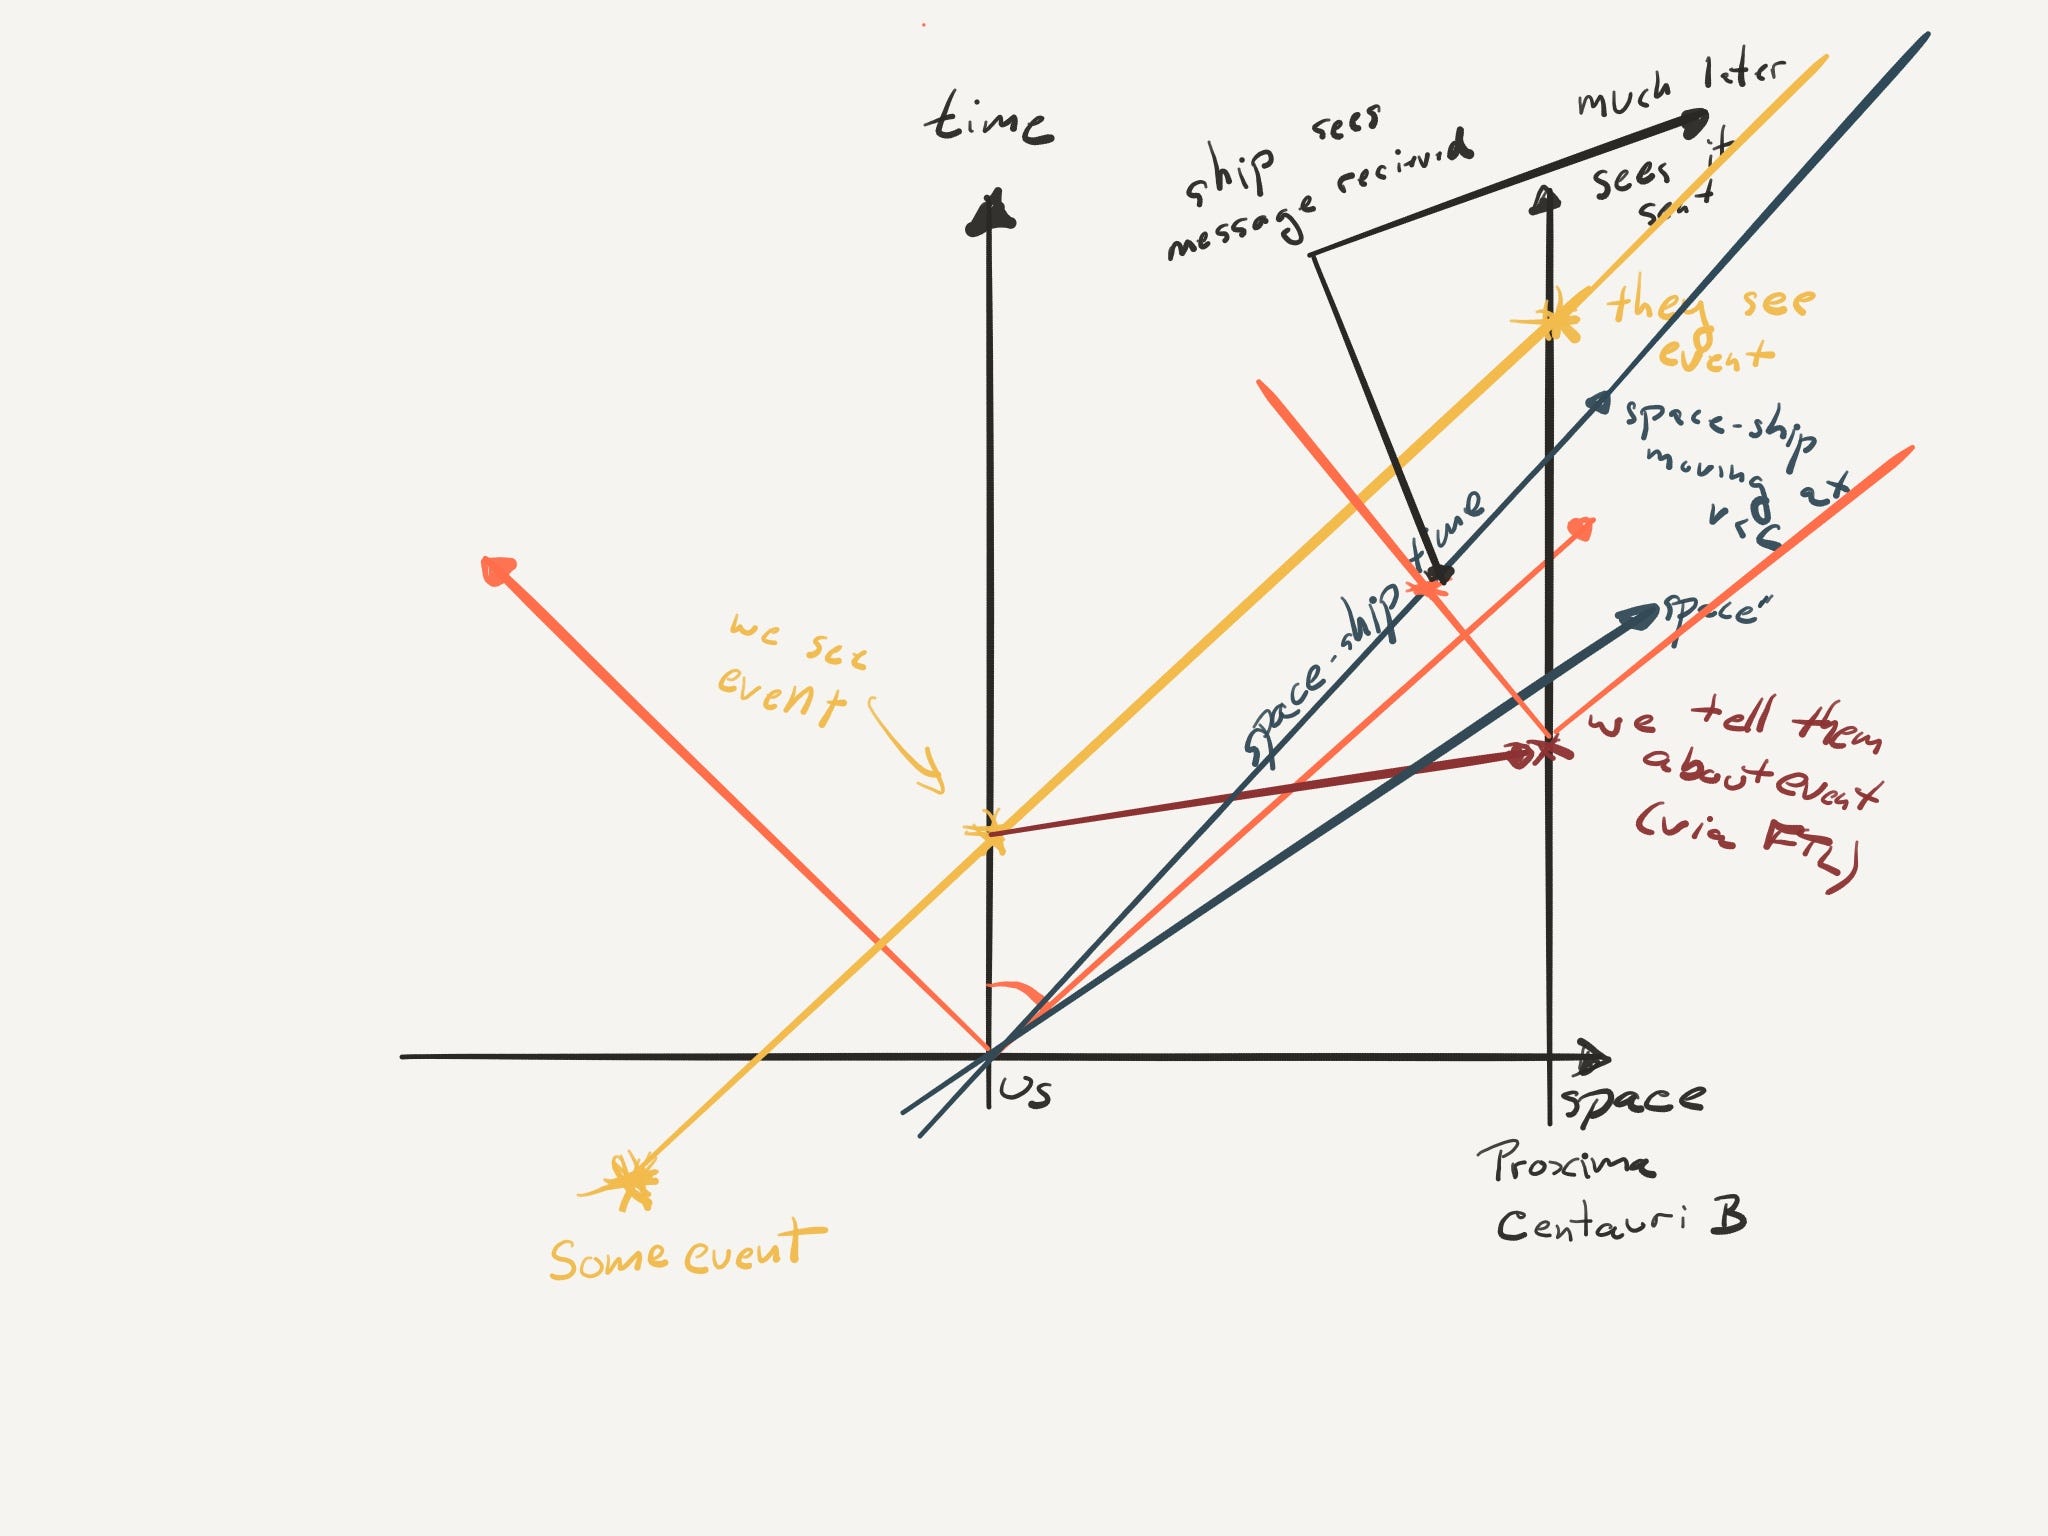 time
ship sees
message recieved
much later
sees it
sent
they see
event
space-ship
moving at
v<c
space-ship time
"space"
we see
event
we tell them
about event
(via FTL)
us
space
Proxima
Centauri B
Some event